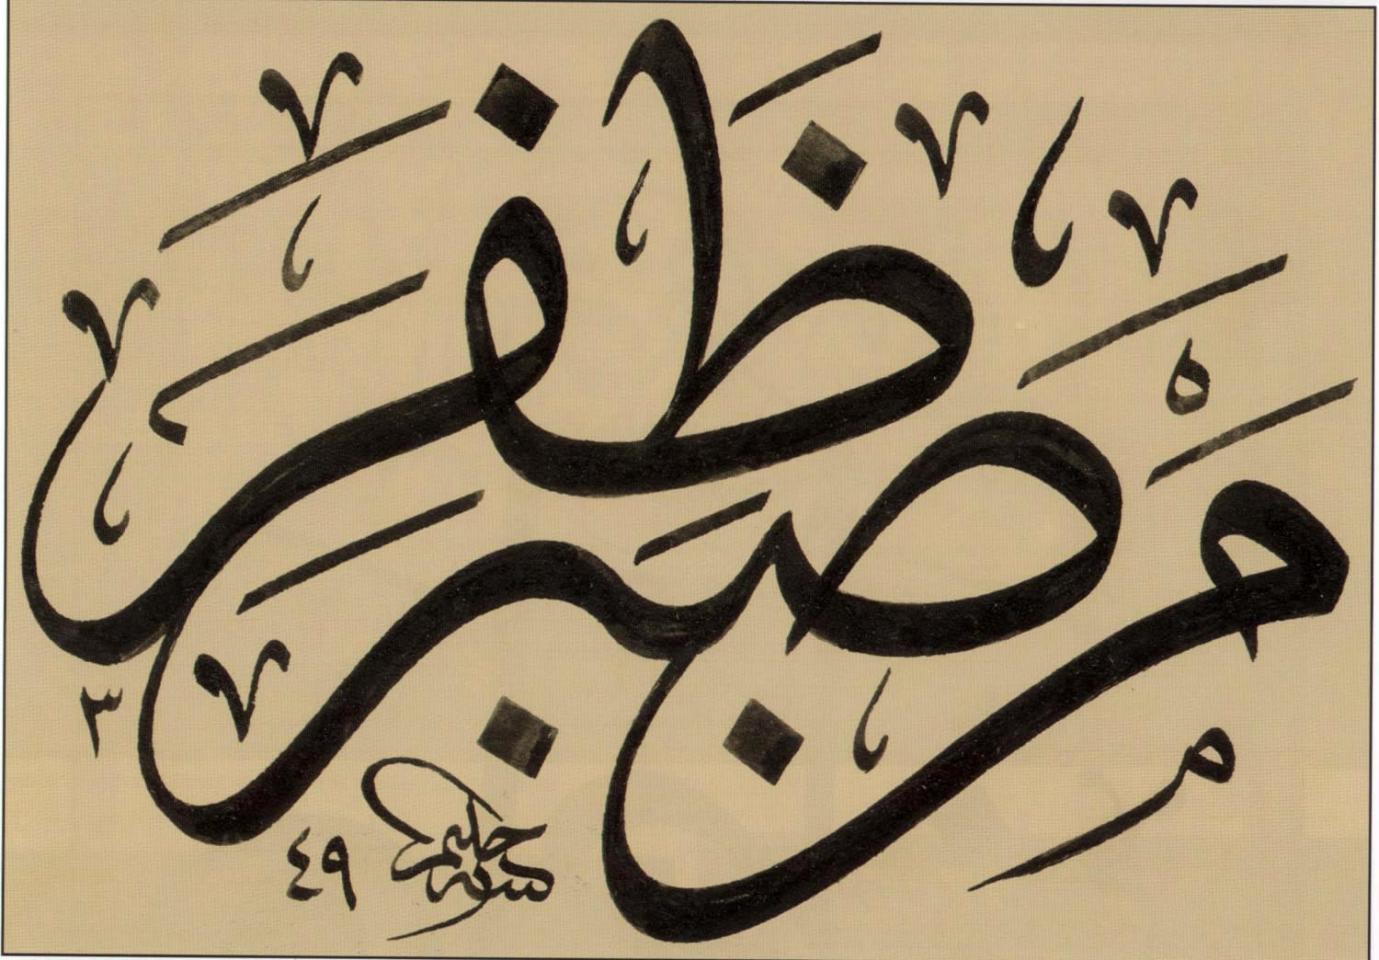 مَنْ صَبَرَ ظَفَرَ
حليم
٤٩